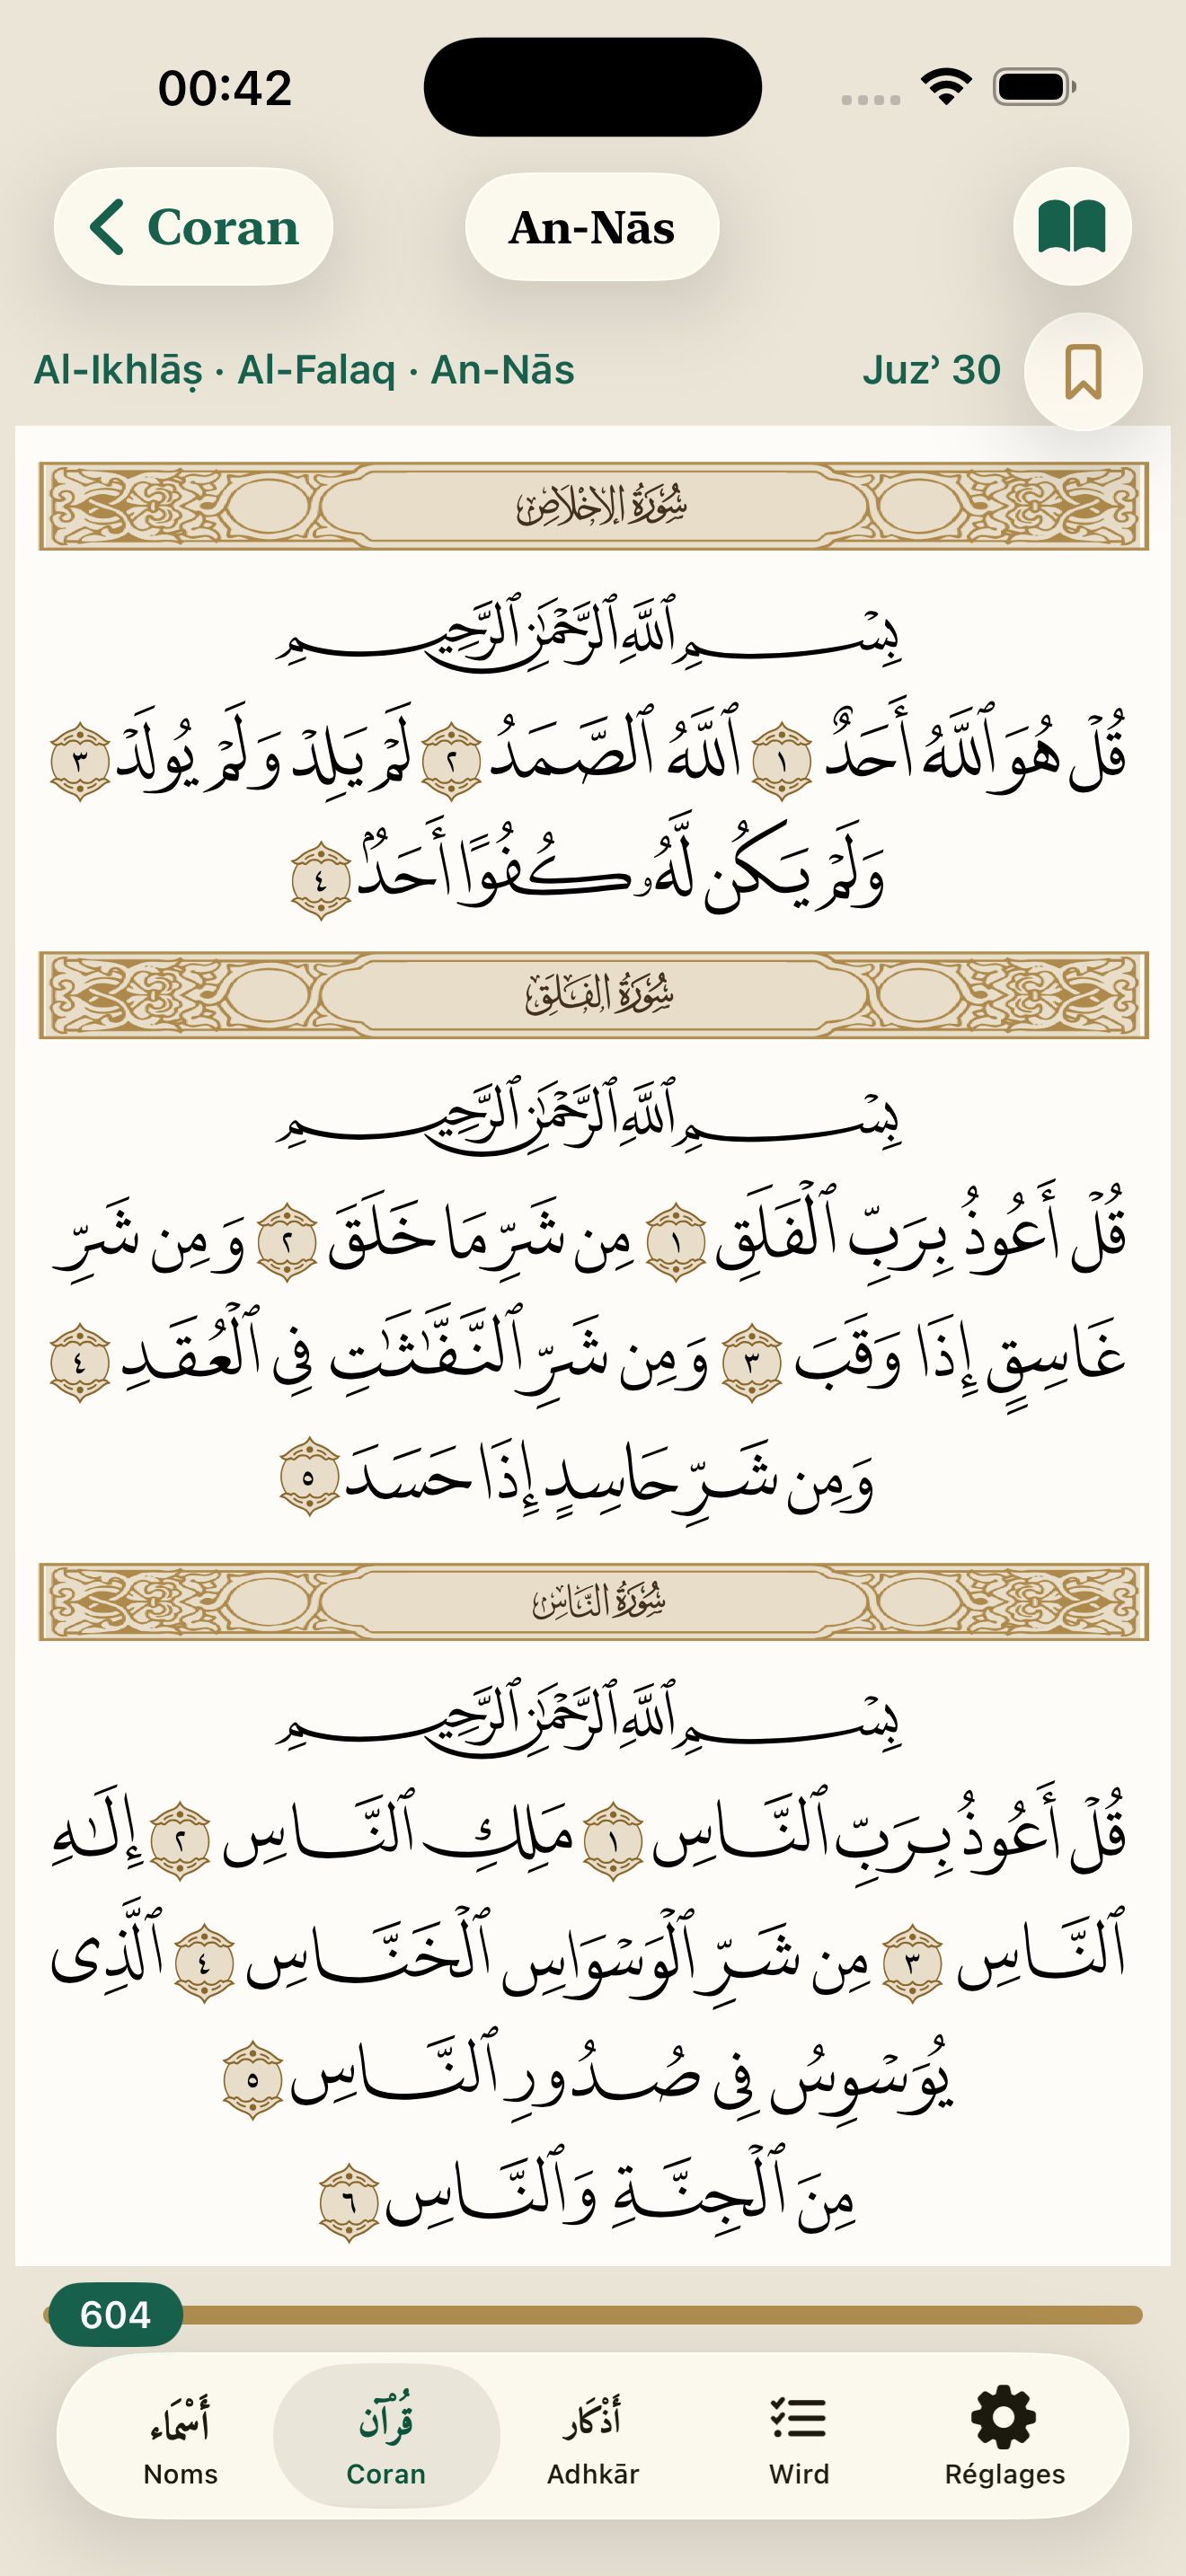 00:42
Coran
An-Nās
Al-Ikhlāṣ · Al-Falaq · An-Nās
Juzʾ 30
سُورَةُ الإِخْلَاصِ
بِسۡمِ ٱللَّهِ ٱلرَّحۡمَٰنِ ٱلرَّحِيمِ
قُلۡ هُوَ ٱللَّهُ أَحَدٌ ١ ٱللَّهُ ٱلصَّمَدُ ٢ لَمۡ يَلِدۡ وَلَمۡ يُولَدۡ ٣
وَلَمۡ يَكُن لَّهُۥ كُفُوًا أَحَدُۢ ٤
سُورَةُ الفَلَقِ
بِسۡمِ ٱللَّهِ ٱلرَّحۡمَٰنِ ٱلرَّحِيمِ
قُلۡ أَعُوذُ بِرَبِّ ٱلۡفَلَقِ ١ مِن شَرِّ مَا خَلَقَ ٢ وَمِن شَرِّ
غَاسِقٍ إِذَا وَقَبَ ٣ وَمِن شَرِّ ٱلنَّفَّٰثَٰتِ فِي ٱلۡعُقَدِ ٤
وَمِن شَرِّ حَاسِدٍ إِذَا حَسَدَ ٥
سُورَةُ النَّاسِ
بِسۡمِ ٱللَّهِ ٱلرَّحۡمَٰنِ ٱلرَّحِيمِ
قُلۡ أَعُوذُ بِرَبِّ ٱلنَّاسِ ١ مَلِكِ ٱلنَّاسِ ٢ إِلَٰهِ
ٱلنَّاسِ ٣ مِن شَرِّ ٱلۡوَسۡوَاسِ ٱلۡخَنَّاسِ ٤ ٱلَّذِي
يُوَسۡوِسُ فِي صُدُورِ ٱلنَّاسِ ٥
مِنَ ٱلۡجِنَّةِ وَٱلنَّاسِ ٦
604
أَسْمَاء
قُرْآن
أَذْكَار
Noms
Coran
Adhkār
Wird
Réglages